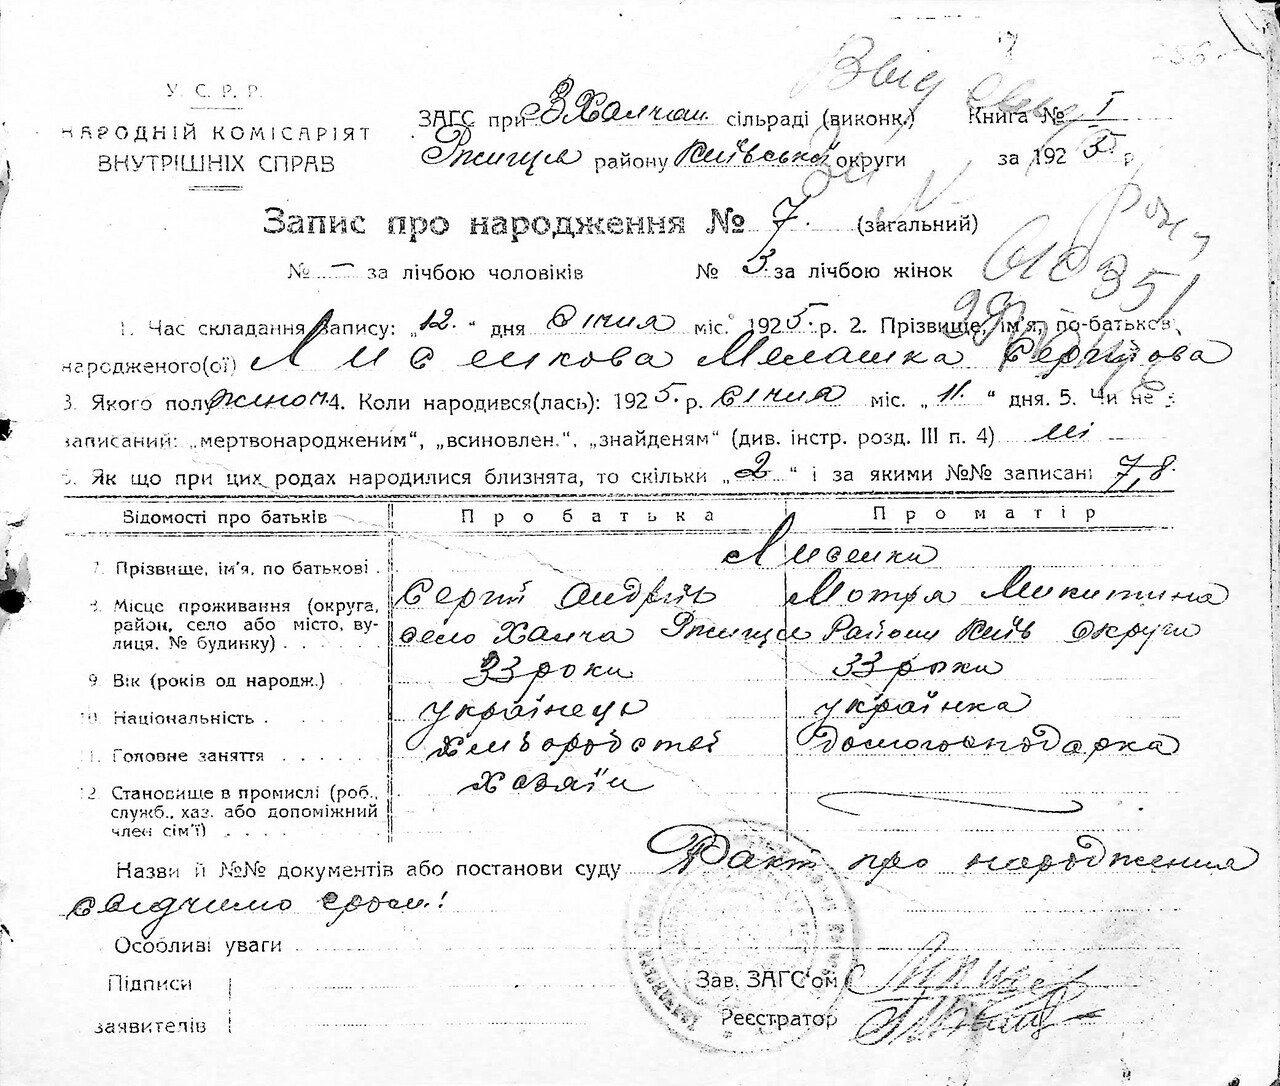 У. С. Р. Р.
НАРОДНІЙ КОМІСАРІЯТ
ВНУТРІШНІХ СПРАВ
ЗАГС при З Халчан. сільраді (виконк.) Книга № I
Ржищів району Київської округи за 1925 р.
Запис про народження № 7. (загальний)
№ — за лічбою чоловіків № 3. за лічбою жінок
1. Час складання запису: „12." дня Січня міс. 1925. р. 2. Прізвище, ім'я, по-батькові
народженого(ої) Лисенкова Мелашка Сергіїова
3. Якого полу жіноч 4. Коли народився(лась): 1925. р. Січня міс. „11." дня. 5. Чи не є
записаний: „мертвонародженим", „всиновлен.", „знайденям" (див. інстр. розд. III п. 4) ні
6. Як що при цих родах народилися близнята, то скільки „2" і за якими №№ записані 7,8
Відомості про батьків Про батька Про матір
7. Прізвище, ім'я, по батькові Лисенки
Сергій Андрїїв Мотря Микитина
8. Місце проживання (округа,
район, село або місто, ву-
лиця, № будинку) село Халча Ржищів Району Київ Округи
9. Вік (років од народж.) 33 роки 33 роки
10. Національність українець українка
11. Головне заняття Хліборобство домогосподарка
12. Становище в промислі (роб.,
служб., хаз. або допоміжний
член сім'ї) Хозяїн
Назви й №№ документів або постанови суду Факт про народження
свідчимо
Особливі уваги
Підписи
заявителів
Зав. ЗАГС'ом
Реєстратор